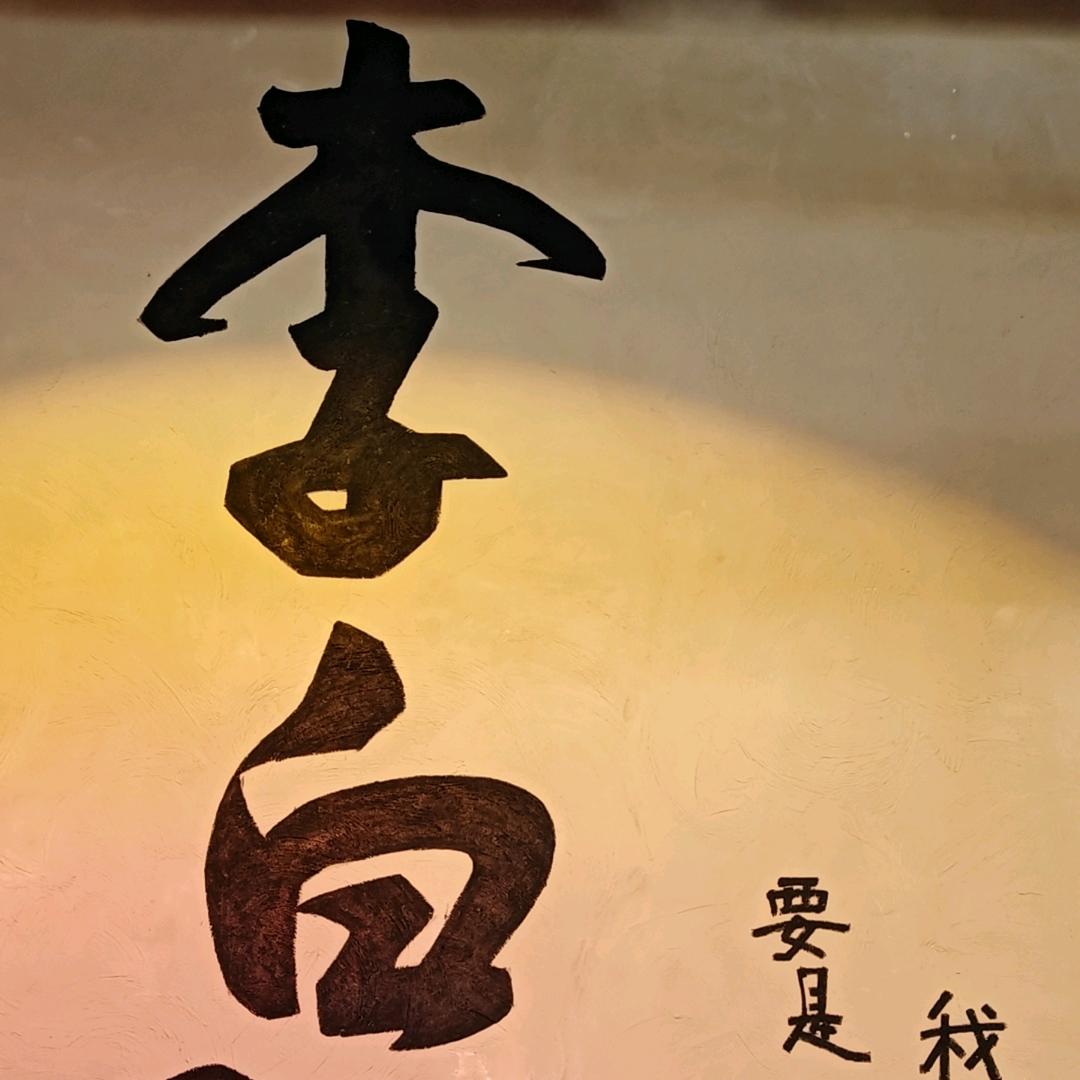 李白
我
要是